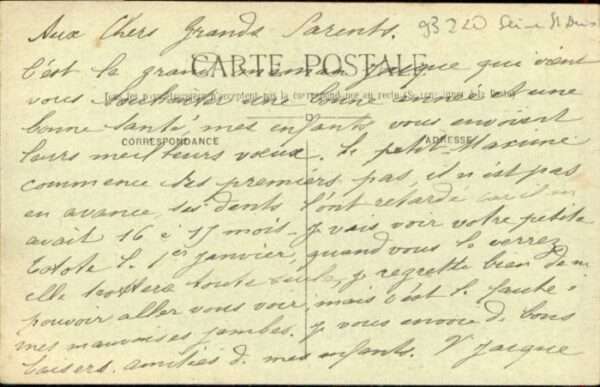 Aux Chers Grands Parents.
93220 Seine St Denis
CARTE POSTALE
C'est la grand maman Jacque qui vient
Tous les pays étrangers n'acceptent pas la correspondance au recto
vous souhaiter une bonne année et une
bonne santé, mes enfants vous envoient
CORRESPONDANCE
ADRESSE
leurs meilleurs vœux. Le petit Maxime
commence ses premiers pas, il n'est pas
en avance, ses dents l'ont retardé car il en
avait 16 à 17 mois. Je vais voir votre petite
le 1er janvier, quand vous la verrez
elle trottera toute seule, je regrette bien de ne
pouvoir aller vous voir, mais c'est la faute à
mes mauvaises jambes. Je vous envoie de bons
baisers. amitiés de mes enfants. Vve Jacque